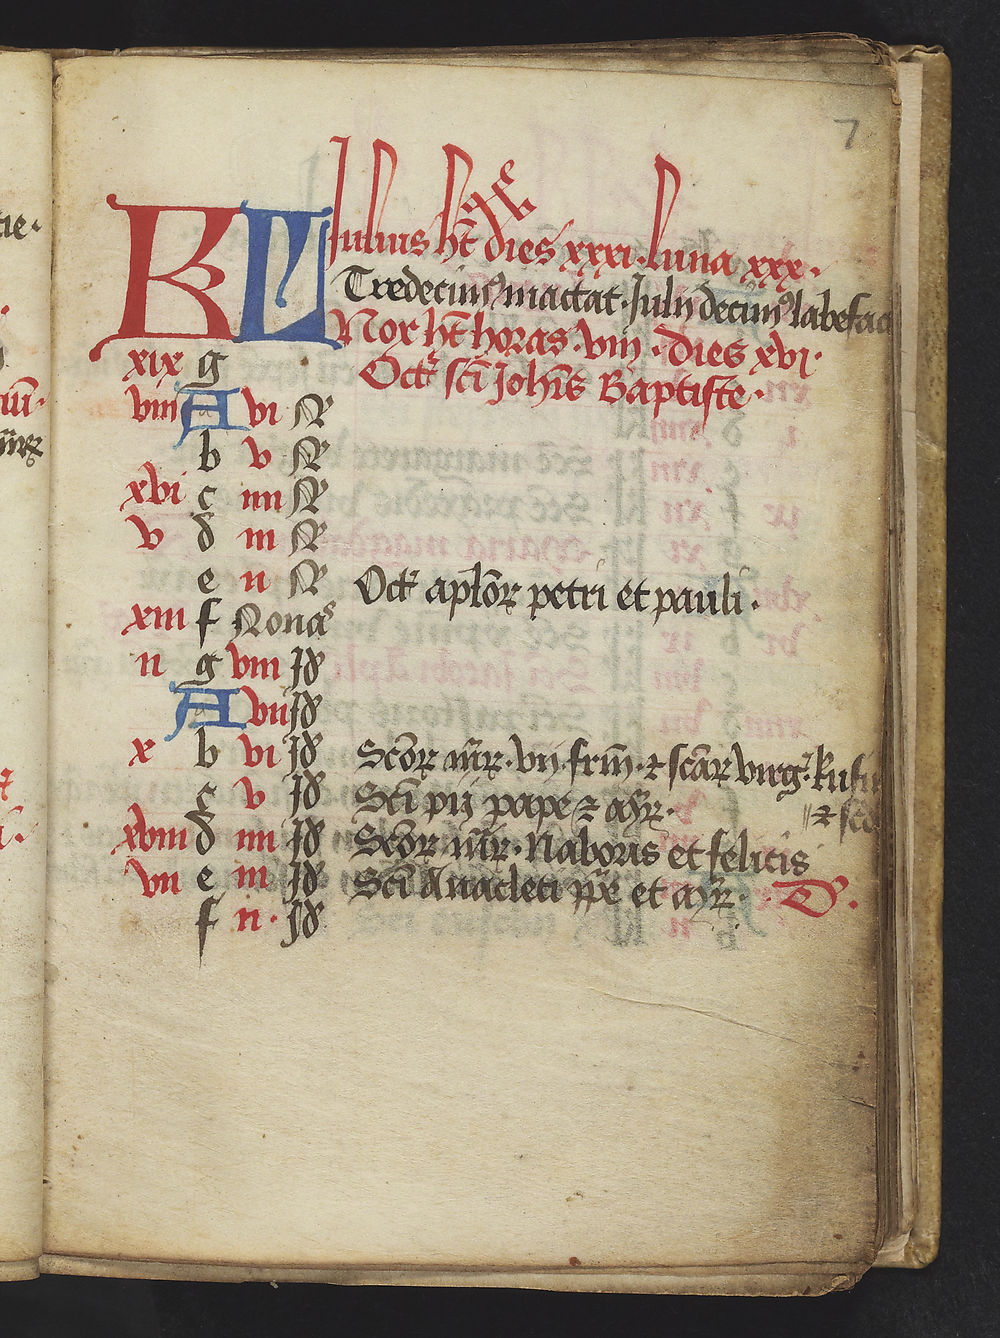 7
KL Julius ht dies xxxi. luna xxx.
Tredecimꝰ mactat. Julij decimꝰ labefac
Nox ht horas. viij. dies xvi.
xix g Oct sci Joh̄is Baptiste.
viij A vi N
b v N
xvi c iiij N
v d iij N
e ii N Oct aplōꝝ petri et pauli.
xiii f Nonas
ii g viii Id
A vii Id
x b vi Id Scōꝝ mr̄ꝝ. vij. frm̄. ⁊ scāꝝ virg. Rufi
c v Id Sci pij pape ⁊ mr̄.
⁊ scd
xviii d iiii Id Scōꝝ mr̄ꝝ. Naboris et felicis
vii e iii Id Sci Anacleti pp̄e et mr̄. D.
f ii. Id